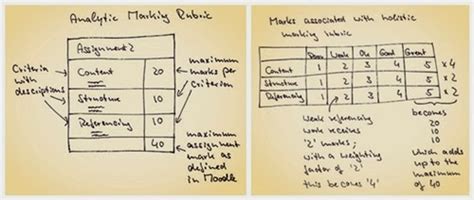 Analytic Marking Rubric
Assignment 2
Criteria with descriptions
Content 20
Structure 10
Referencing 10
40
maximum marks per criterion
maximum assignment mark as defined in Moodle
Marks associated with holistic
marking rubric
Poor Weak Ok Good Great
Content 1 2 3 4 5 x 4
Structure 1 2 3 4 5 x 2
Referencing 1 2 3 4 5 x 2
Weak referencing
work receives
'2' marks;
with a weighting
factor of '2'
this becomes '4'
becomes
20
10
10
which adds
up to the
maximum
of 40